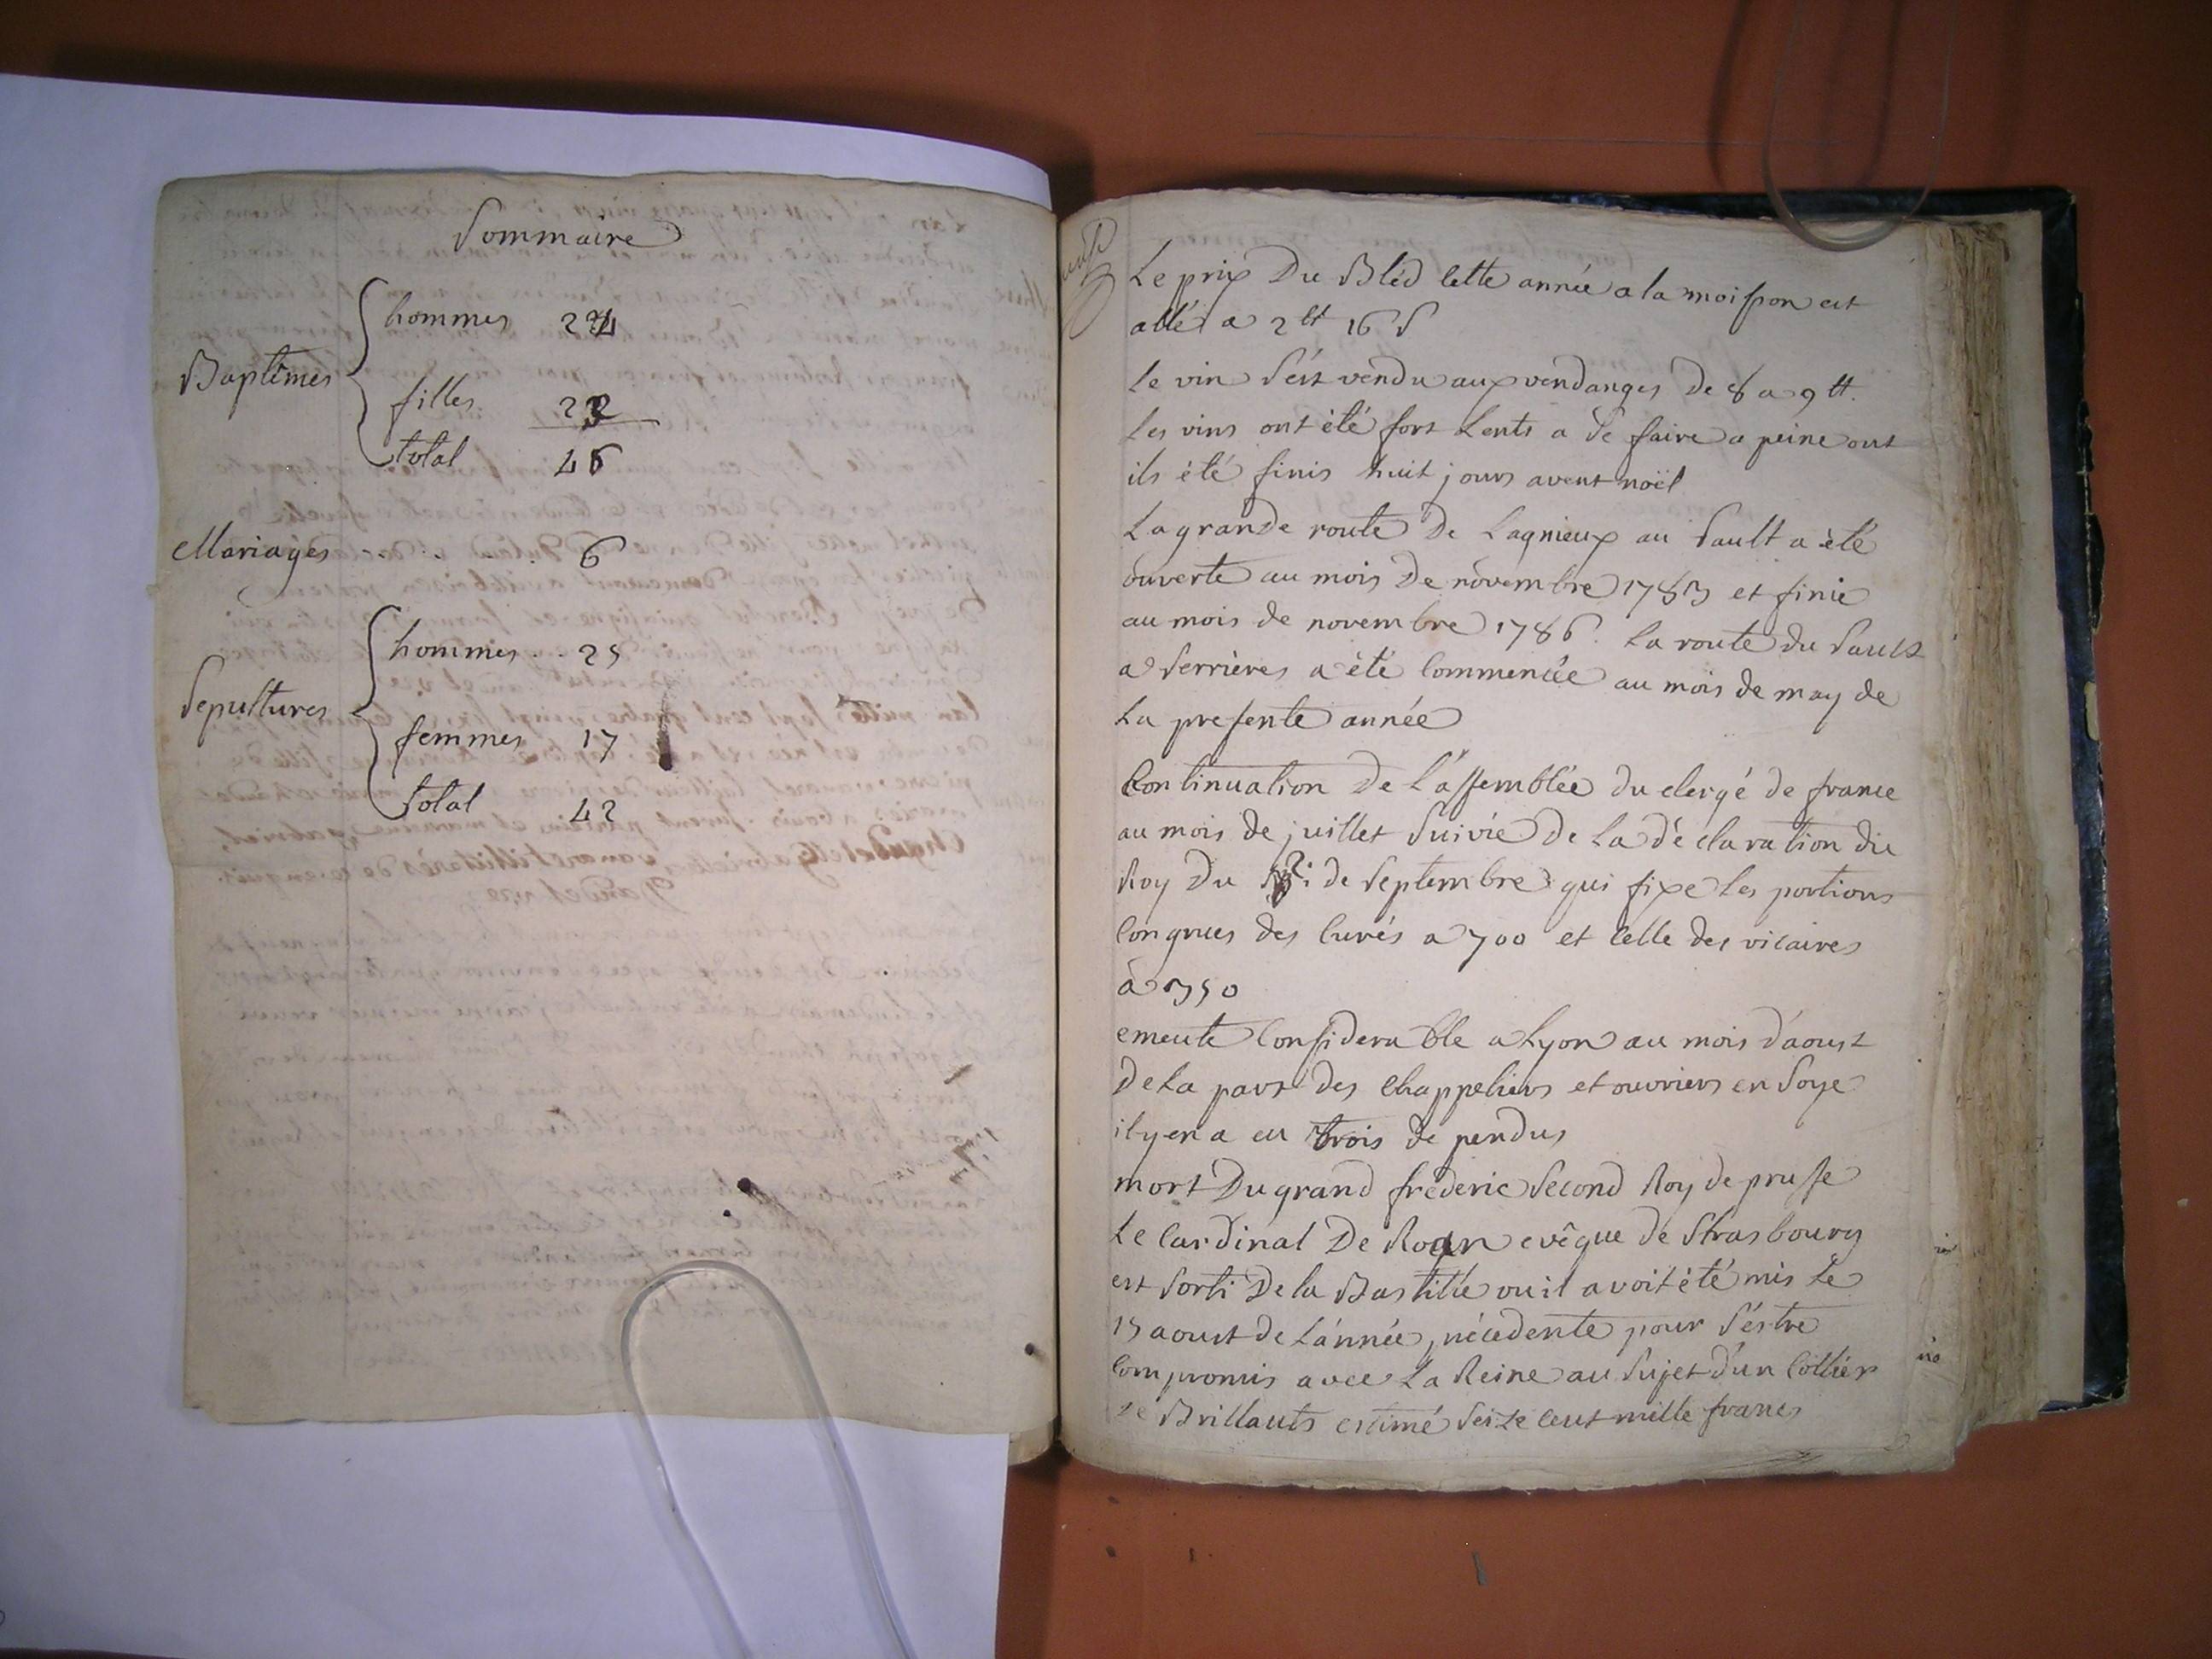 Sommaire
Baptêmes
hommes 24
filles 22
total 46
Mariages . . . . 6
Sepultures
hommes . . 25
femmes 17
total 42
Le prix Du Bléd cette année a la moisson est
allé a 2 lt 16 s
le vin s'est vendu aux vendanges De 8 a 9 lt.
les vins ont été fort lents a se faire a peine ont
ils été finis huit jours avent noël
La grande route De Lagnieux au Sault a été
ouverte au mois De novembre 1783 et finie
au mois de novembre 1786. la route du Sault
a Serrières a été Commencée au mois de may de
la presente année
Continuation De l'assemblée du clergé de france
au mois de juillet Suivie De la déclaration du
Roy Du de Septembre qui fixe les portions
Congrues des Curés a 700 et Celle des vicaires
à 350
emeute Considerable a Lyon au mois d'aoust
De la part des Chappeliers et ouvriers en Soye
il y en a eu trois de pendus
mort Du grand frederic Second Roy de prusse
Le Cardinal De Roan evêque de Strasbourg
est Sorti De la Bastille ou il avoit été mis le
15 aoust de l'année précedente pour s'estre
Compromis avec la Reine au Sujet d'un Collier
de Brillants estimé Seize cent mille francs